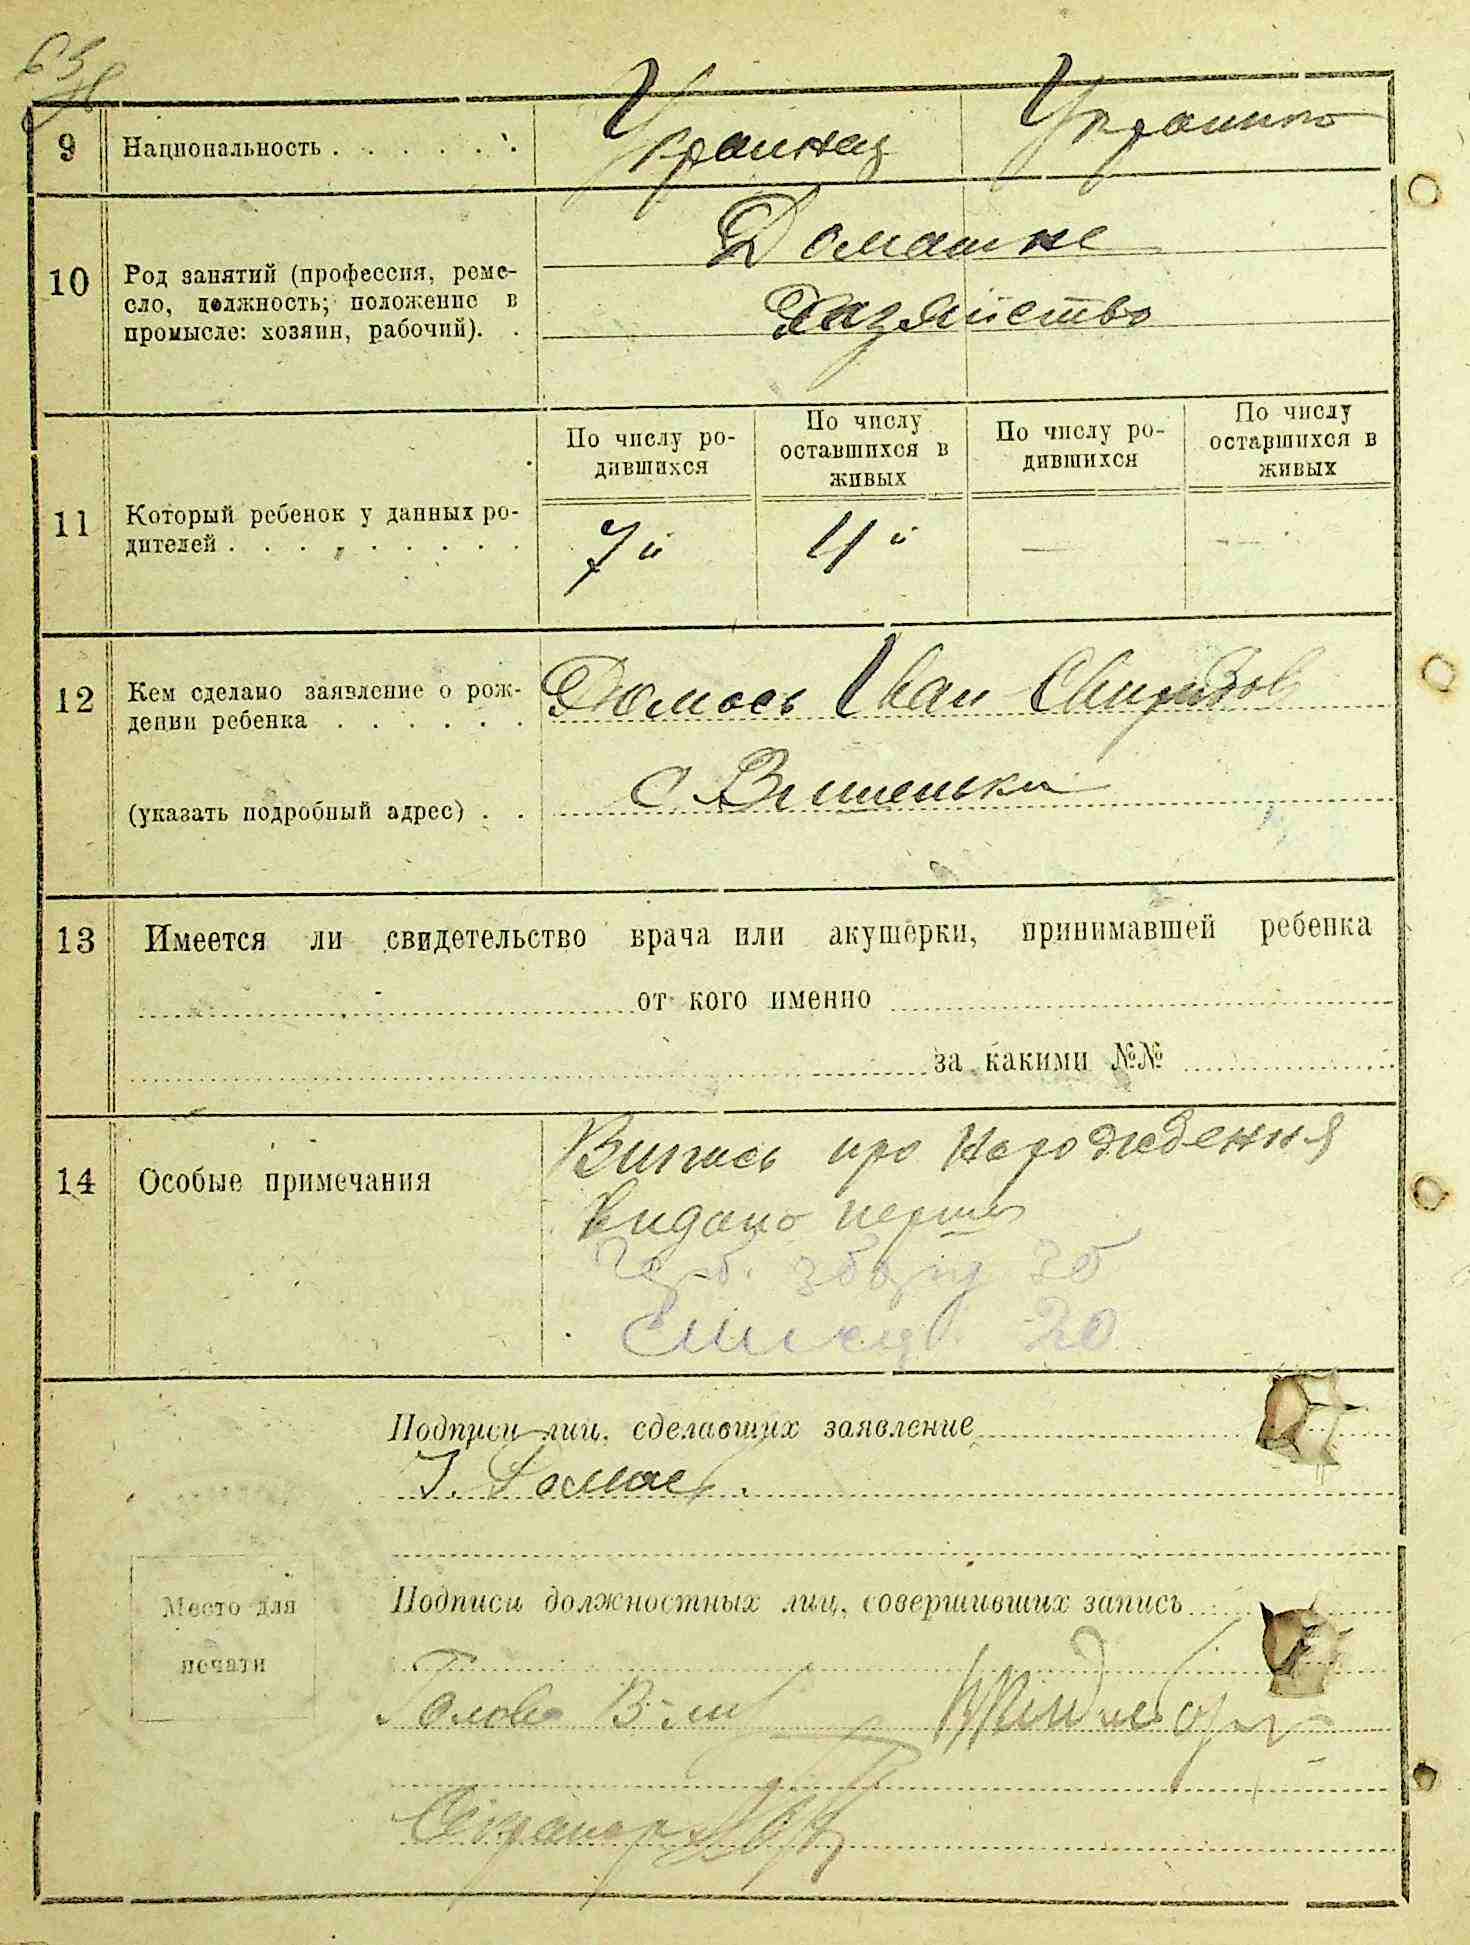 63
9 Национальность . . . . . . Украинец Украинка
10 Род занятий (профессия, реме-
сло, должность; положение в
промысле: хозяин, рабочий). .
Домашне
Хазяйство
11 Который ребенок у данных ро-
дителей . . . . . . . . .
По числу ро-
дившихся
По числу
оставшихся в
живых
По числу ро-
дившихся
По числу
оставшихся в
живых
7й 4й — —
12 Кем сделано заявление о рож-
дении ребенка . . . . . .
Домось Иван Свиридов
(указать подробный адрес) . .
с. Вишеньки
13 Имеется ли свидетельство врача или акушерки, принимавшей ребенка
от кого именно
за какими №№
14 Особые примечания
Випись про народження
Видано перший
20
Подписи лиц, сделавших заявление
І. Домась.
Подписи должностных лиц, совершивших запись
Место для
печати
Голова
Секретар